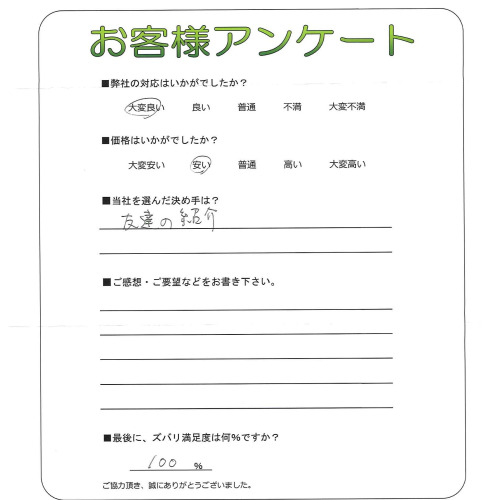 お客様アンケート
■弊社の対応はいかがでしたか？
大変良い 良い 普通 不満 大変不満
■価格はいかがでしたか？
大変安い 安い 普通 高い 大変高い
■当社を選んだ決め手は？
友達の紹介
■ご感想・ご要望などをお書き下さい。
■最後に、ズバリ満足度は何%ですか？
100 %
ご協力頂き、誠にありがとうございました。